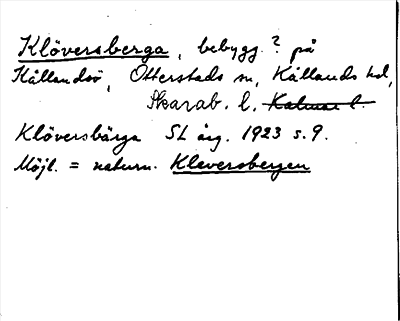 Klöversberga, bebygg.? på
Kållandsö, Otterstads sn, Kållands hd,
Skarab. l. Kalmar l.
Klöversbärga SL årg. 1923 s. 9.
Möjl. = naturn. Kleversbergen